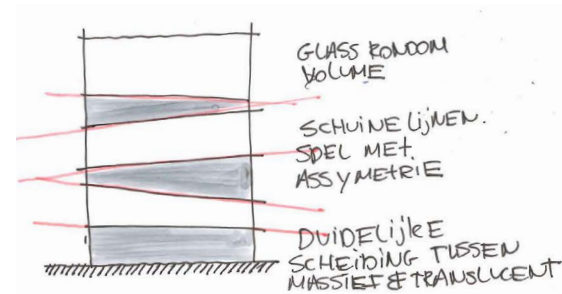 GLASS RONDOM
VOLUME
SCHUINE LIJNEN.
SPEL MET
ASSYMETRIE
DUIDELIJKE
SCHEIDING TUSSEN
MASSIEF & TRANSLUCENT